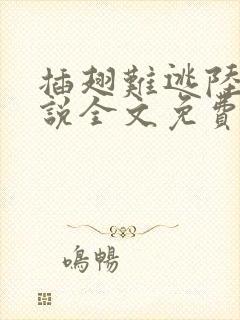 插翅難逃陸
說全文免費
鳴暢